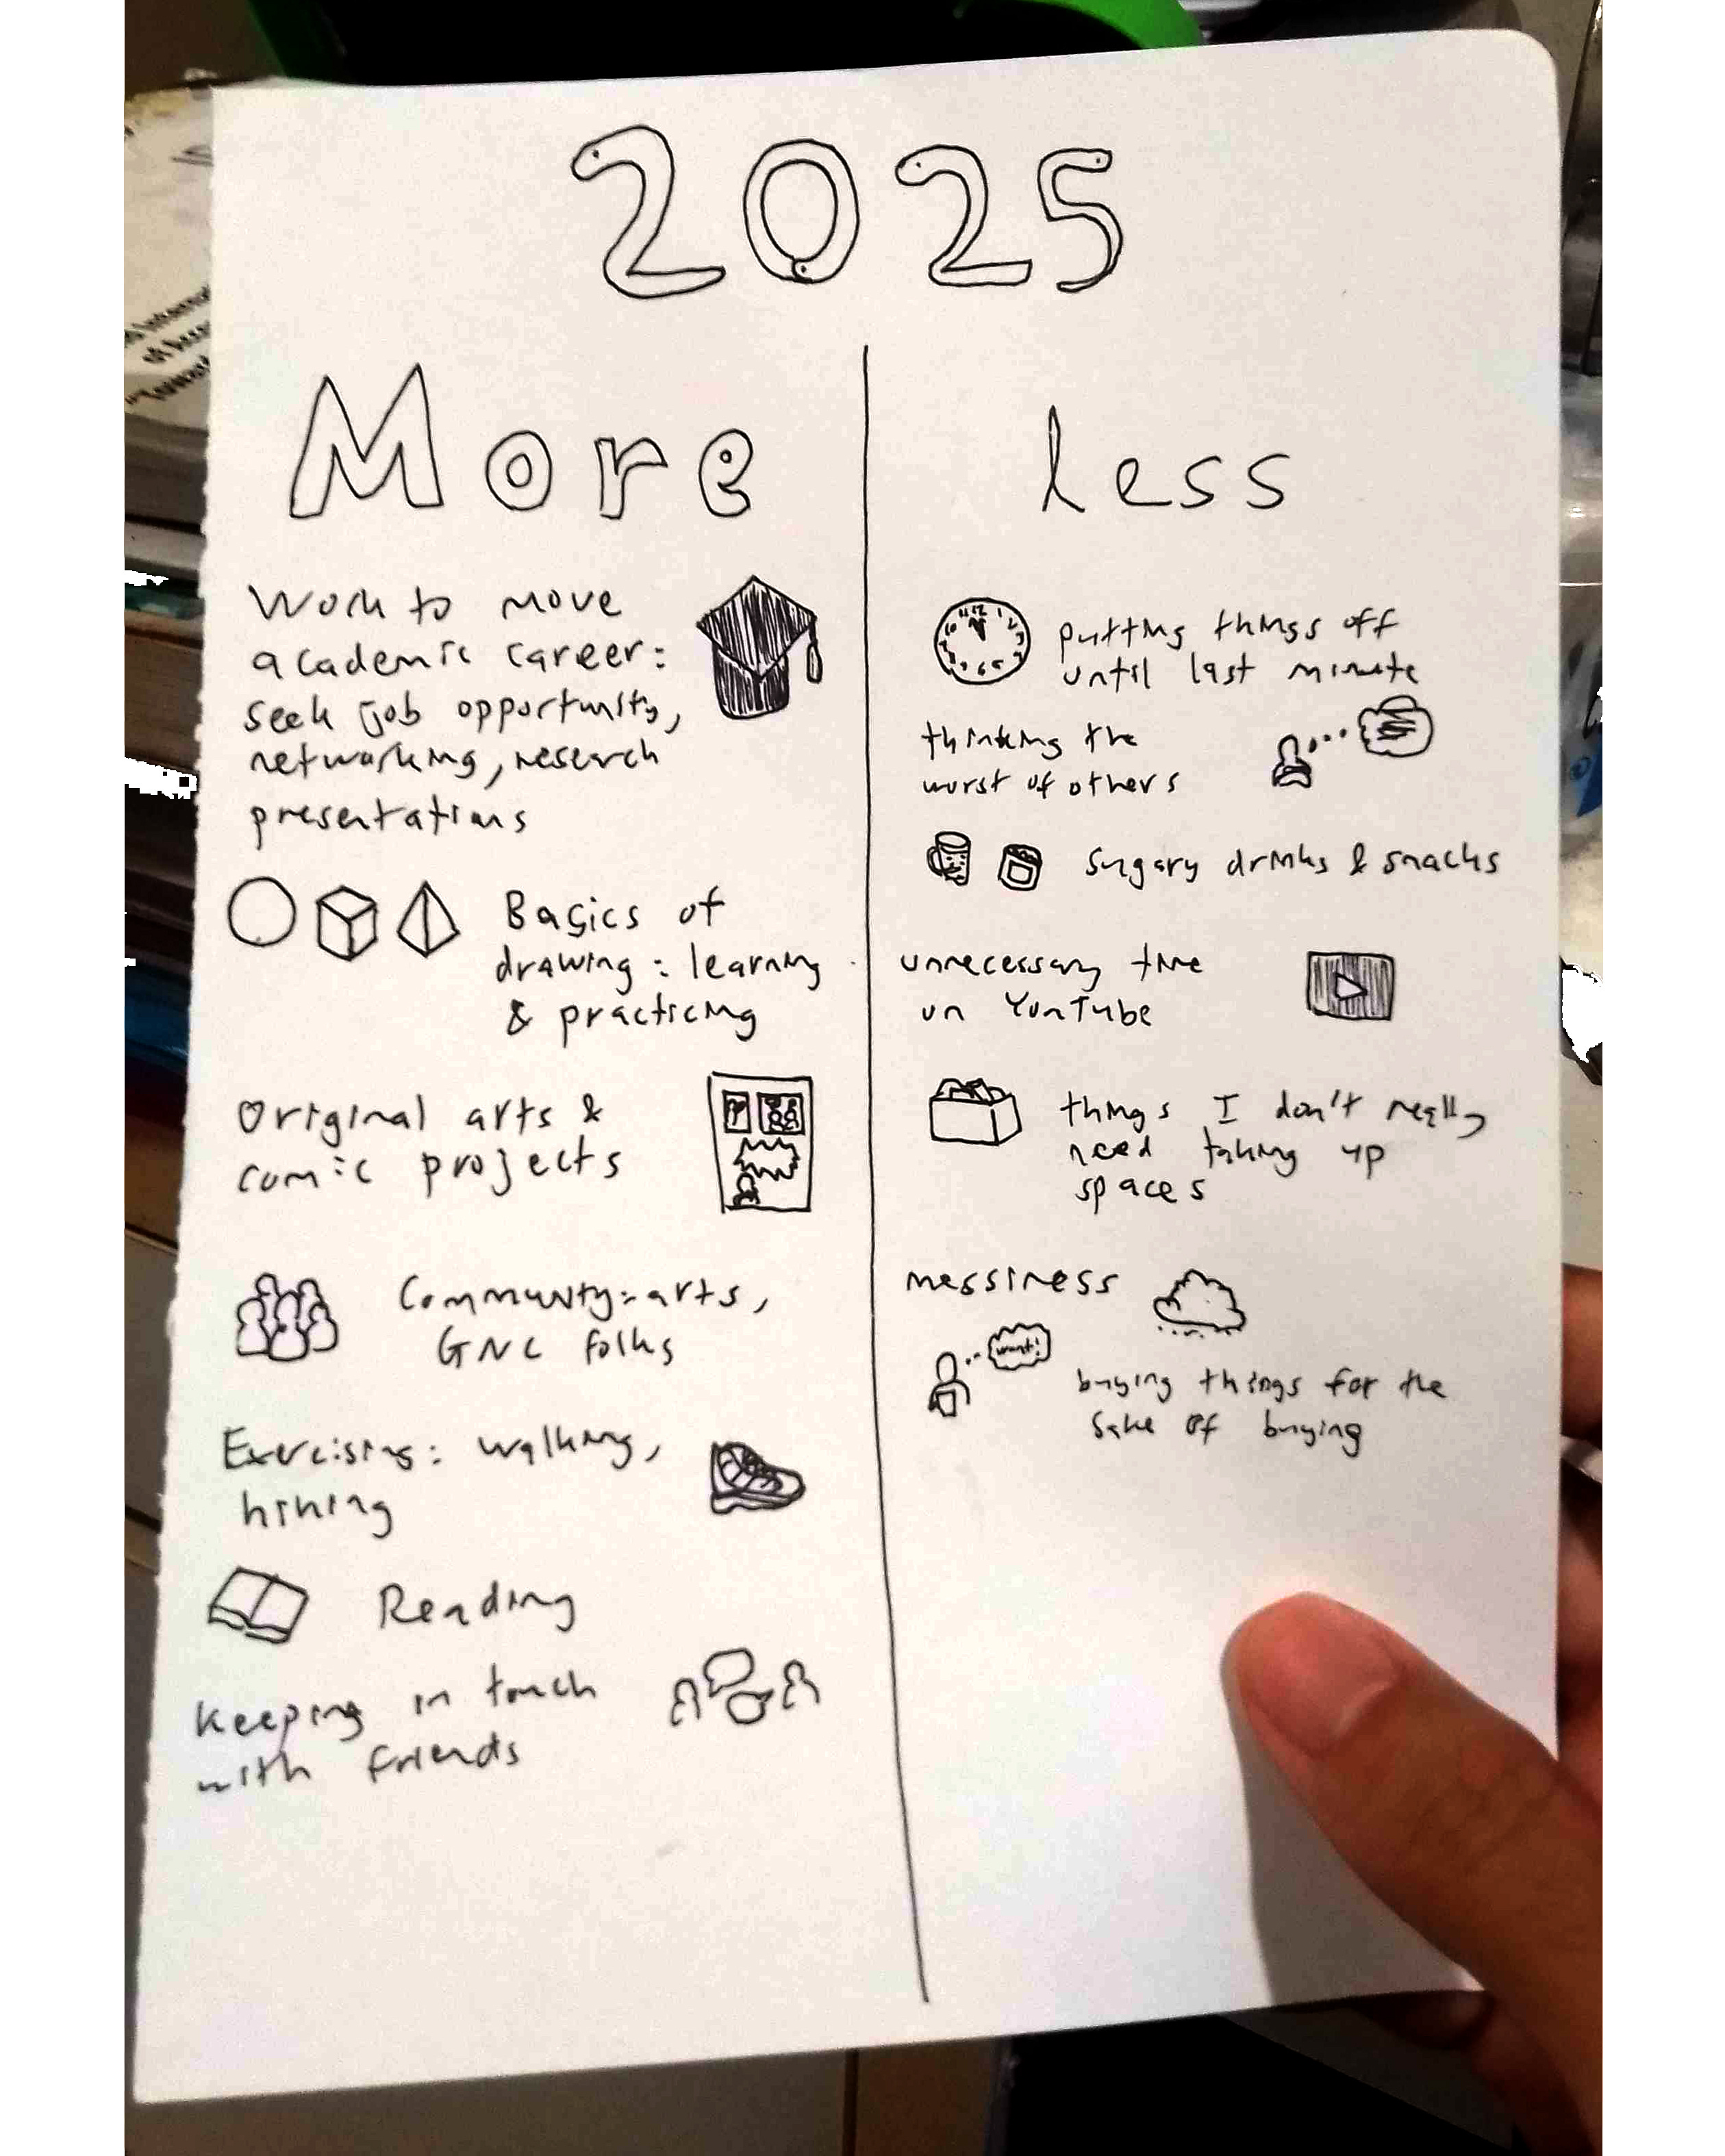 2025
More
Work to move
academic career:
seek job opportunity,
networking, research
presentations
Basics of
drawing: learning
& practicing
Original arts &
comic projects
Community: arts,
GNC folks
Exercising: walking,
hiking
Reading
Keeping in touch
with friends
less
putting things off
until last minute
thinking the
worst of others
Sugary drinks & snacks
unnecessary time
on YouTube
things I don't really
need taking up
spaces
messiness
want!
buying things for the
sake of buying